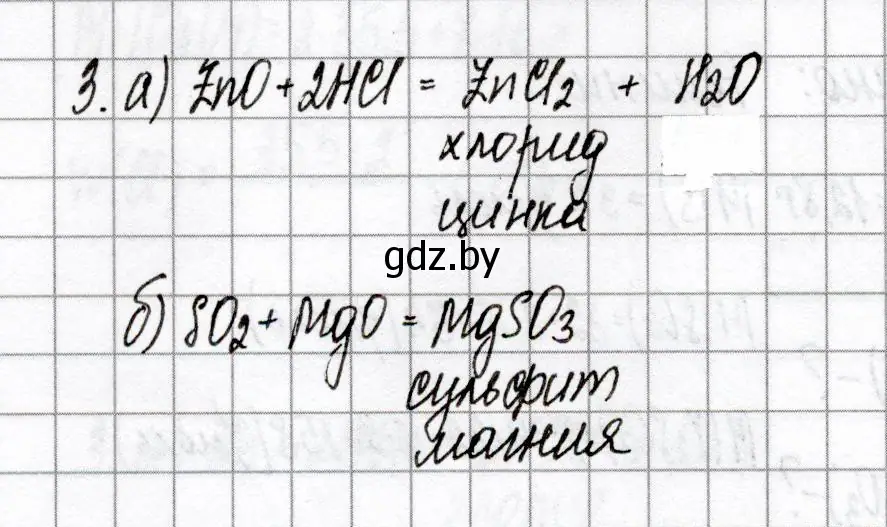 3. а) ZnO + 2HCl = ZnCl2 + H2O
хлорид
цинка
gdz.by
б) SO2 + MgO = MgSO3
сульфит
магния